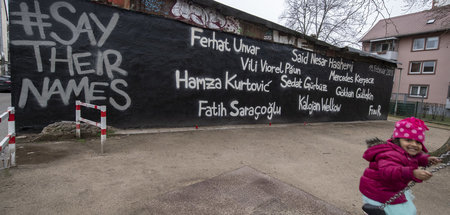 #SAY
THEIR
NAMES
Ferhat Unvar
Said Nesar Hashemi
19. Februar 2020
Vili Viorel Păun
Mercedes Kierpacz
Hamza Kurtović
Sedat Gürbüz
Gökhan Gültekin
Fatih Saraçoğlu
Kaloyan Velkov